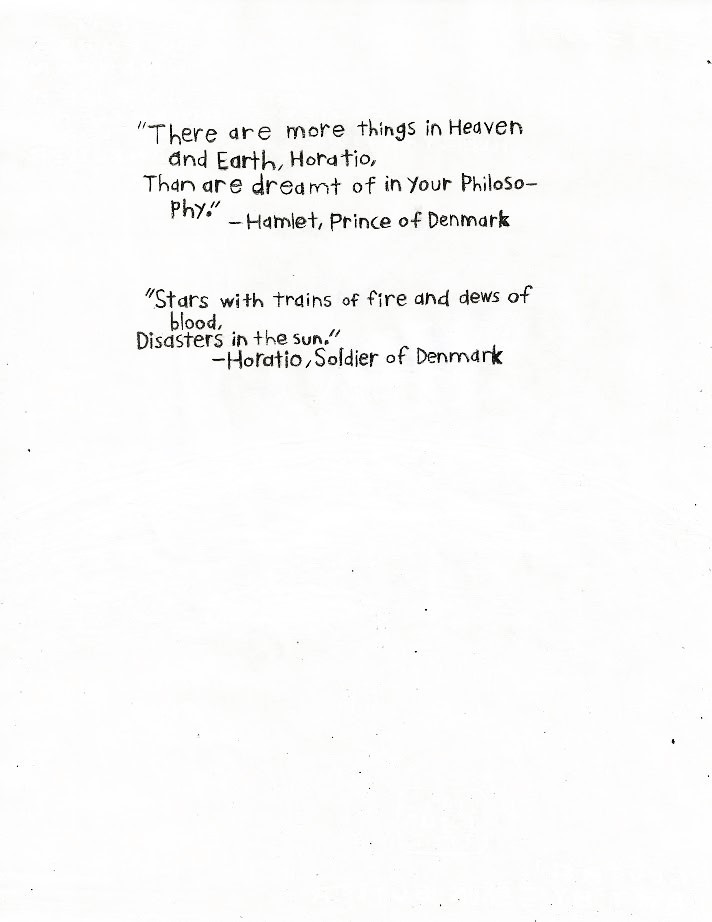 "There are more things in Heaven
and Earth, Horatio,
Than are dreamt of in your Philoso-
phy."
-Hamlet, Prince of Denmark
"Stars with trains of fire and dews of
blood,
Disasters in the sun."
-Horatio, Soldier of Denmark